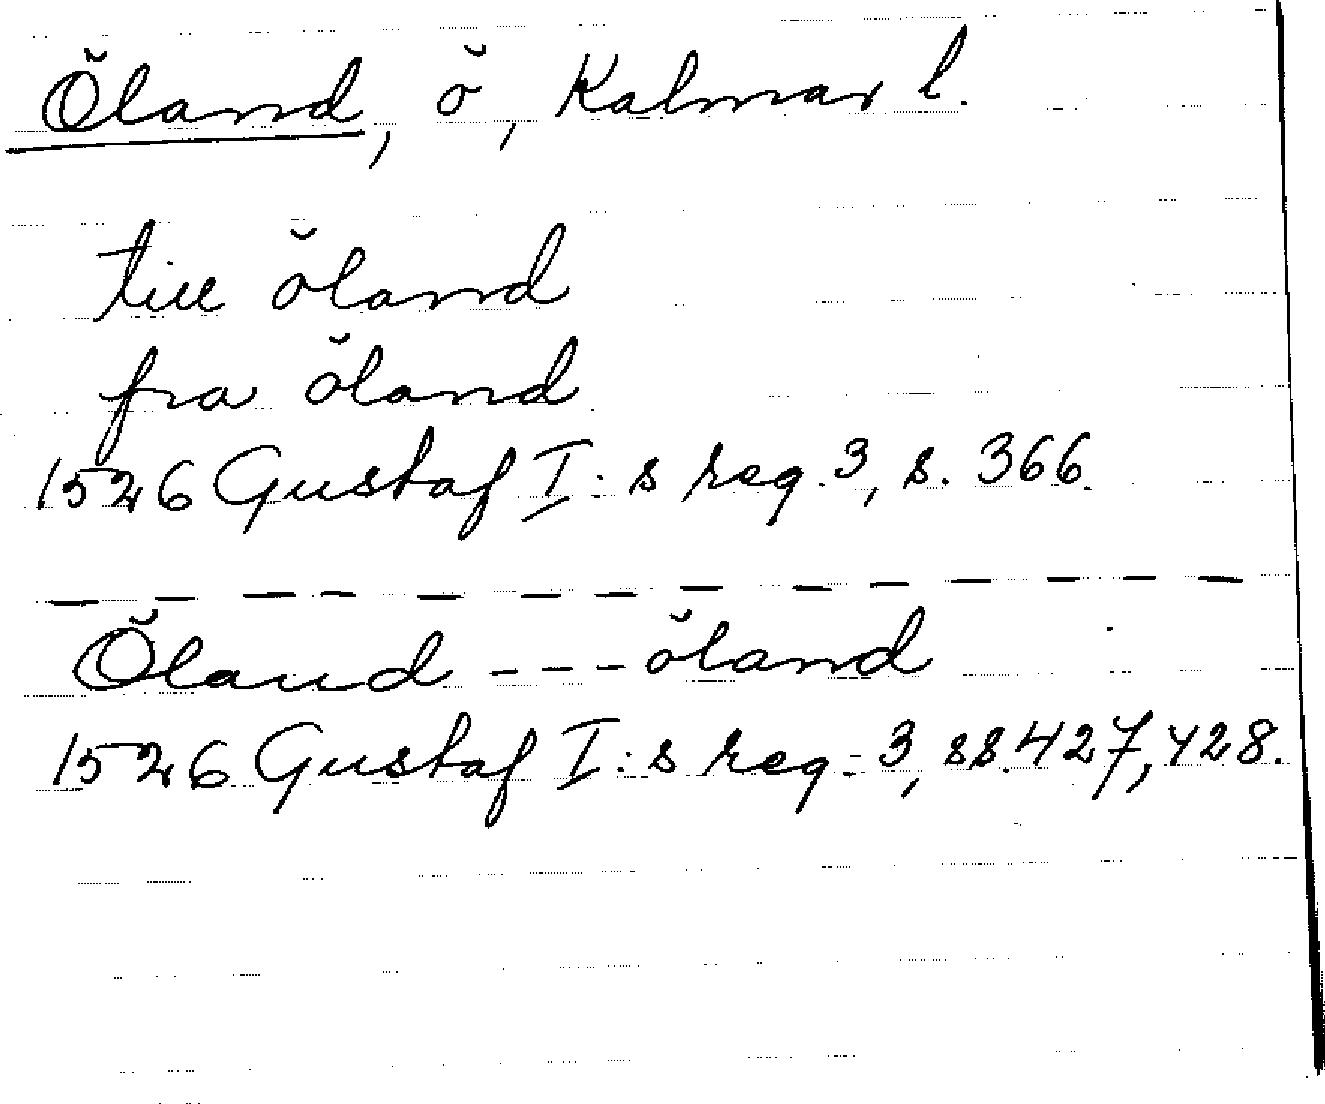 Öland, ö, Kalmar l.
till öland
fra öland
1526 Gustaf I:s reg. 3, s. 366.
Öland --- öland
1526 Gustaf I:s reg. 3, ss. 427, 428.